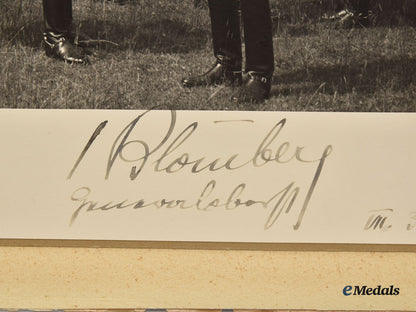 v Blomberg
Generaloberst
III.
eMedals